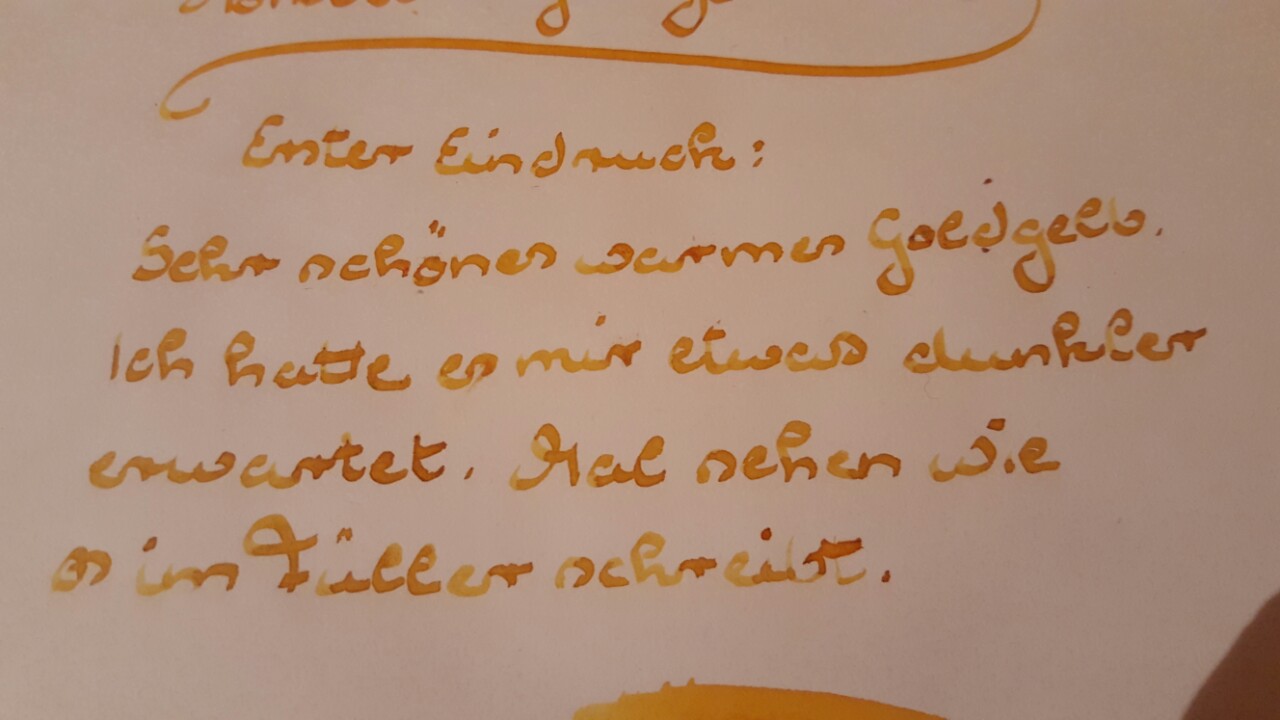 Erster Eindruck:
Sehr schönes warmes Goldgelb.
Ich hatte es mir etwas dunkler
erwartet. Mal sehen wie
es im Füller schreibt.